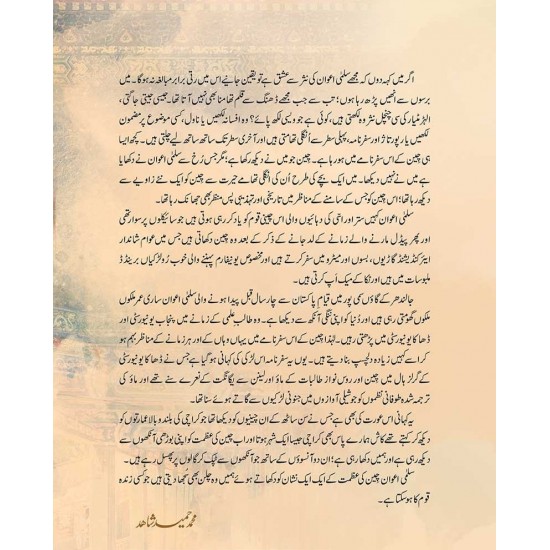 اگر میں کہہ دوں کہ مجھے سلمٰی اعوان کی نثر سے عشق ہے تو یقین جانیے اس میں رتی برابر مبالغہ نہ ہوگا۔ میں
برسوں سے انھیں پڑھ رہا ہوں؛ تب سے جب مجھے ڈھنگ سے قلم تھامنا بھی نہیں آتا تھا۔ جیسی جیتی جاگتی،
الہڑ مٹیار کی سی چنچل نثر وہ لکھتی ہیں، کوئی ہے جو ویسی لکھ پائے؟ وہ افسانہ لکھیں یا ناول، کسی موضوع پر مضمون
لکھیں یا رپورتاژ اور سفرنامہ، پہلی سطر سے اُنگلی تھامتی ہیں اور آخری سطر تک ساتھ ساتھ لیے چلتی ہیں۔ کچھ ایسا
ہی چین کے اس سفرنامے میں ہو رہا ہے۔ چین جو میں نے دیکھ رکھا ہے؛ مگر جس رُخ سے سلمٰی اعوان نے دکھایا
ہے میں نے نہیں دیکھا۔ میں ایک بچے کی طرح اُن کی انگلی تھامے حیرت سے چین کو ایک نئے زاویے سے
دیکھ رہا تھا؛ اس چین کو جس کے سامنے کے مناظر میں تاریخی اور تہذیبی پس منظر بھی جھانک رہا تھا۔
سلمٰی اعوان کہیں ستر اور اسی کی دہائیوں والی اس چینی قوم کو یاد کر رہی ہوتی ہیں جو سائیکلوں پر سوار تھی
اور پھر پیڈل مارنے والے زمانے کے لد جانے کے ذکر کے بعد وہ چین دکھاتی ہیں جس میں عوام شاندار
ایئرکنڈیشنڈ گاڑیوں، بسوں اور میٹرو میں سفر کرتے ہیں اور مخصوص یونیفارم پہننے والی خوب رُو لڑکیاں برینڈڈ
ملبوسات میں ہیں اور نکا کے میک اَپ کرتی ہیں۔
جالندھر کے گاؤں سمی پور میں قیامِ پاکستان سے چار سال قبل پیدا ہونے والی سلمٰی اعوان ساری عمر ملکوں
ملکوں گھومتی رہی ہیں اور دُنیا کو اپنی ننگی آنکھ سے دیکھا ہے۔ وہ طالبِ علمی کے زمانے میں پنجاب یونیورسٹی اور
ڈھاکا یونیورسٹی میں رہی ہیں۔ لہٰذا چین کے اس سفرنامے میں یہاں وہاں کے اور ہر زمانے کے مناظر بہم ہو
کر اسے کہیں زیادہ دلچسپ بنا دیتے ہیں۔ یوں یہ سفرنامہ اس لڑکی کی کہانی ہو گیا ہے جس نے ڈھاکا یونیورسٹی
کے گرلز ہال میں چین اور روس نواز طالبات کے ماؤ اور لینن سے یگانگت کے نعرے سنے تھے اور ماؤ کی
ترجمہ شدہ طوفانی نظموں کو جوشیلی آوازوں میں جنونی لڑکیوں سے گاتے ہوئے سنا تھا۔
یہ کہانی اس عورت کی بھی ہے جس نے سن ساٹھ کے ان چینیوں کو دیکھا تھا جو کراچی کی بلند و بالا عمارتوں کو
دیکھ کر کہتے تھے کاش ہمارے پاس بھی کراچی جیسا ایک شہر ہوتا اور اب چین کی عظمت کو اپنی بوڑھی آنکھوں سے
دیکھ رہی ہے اور ہمیں دکھا رہی ہے؛ ان دو آنسوؤں کے ساتھ جو آنکھوں سے ٹپک کر گالوں پر پھسل رہے ہیں۔
سلمٰی اعوان چین کی عظمت کے ایک ایک نشان کو دکھاتے ہوئے ہمیں وہ چلن بھی سمجھا دیتی ہیں جو کسی زندہ
قوم کا ہو سکتا ہے۔
محمد حمید شاہد